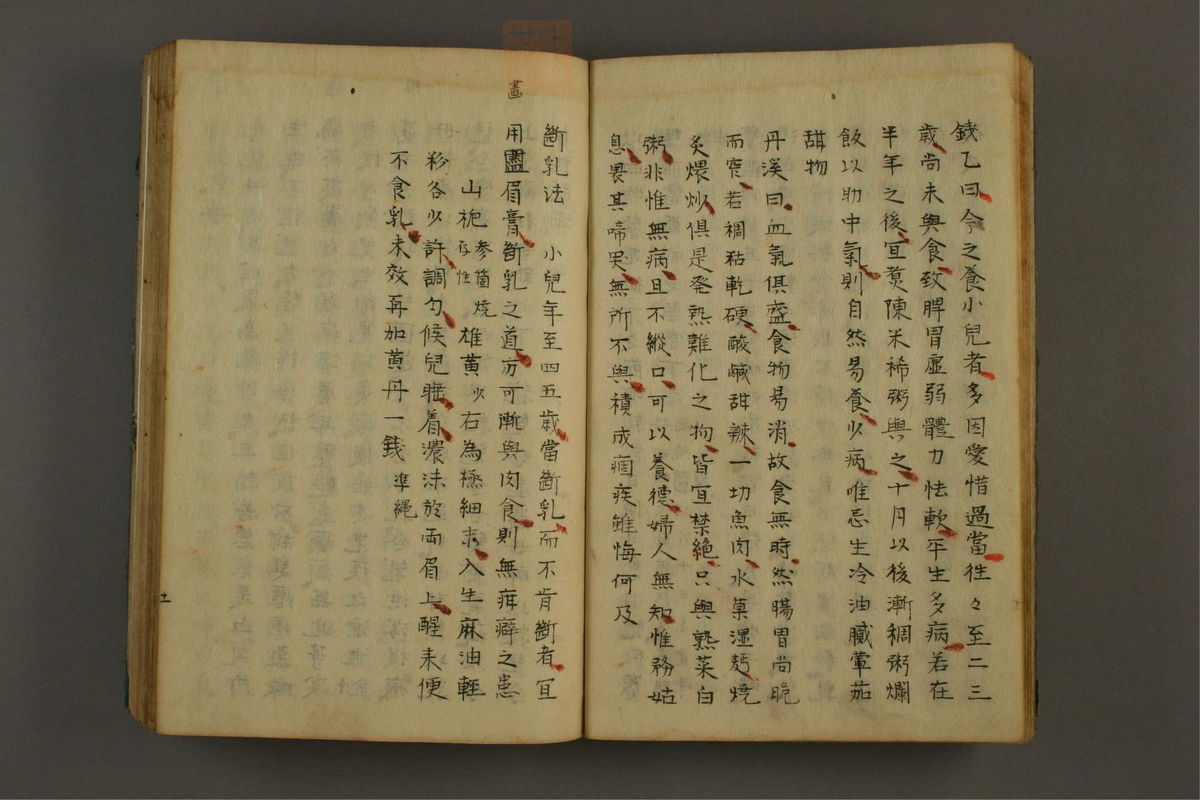 錢乙曰今之養小兒者多因愛惜過當徃々至二三
歲尚未與食致脾胃虛弱體力怯軟平生多病若在
半年之後宜煑陳米稀粥與之十月以後漸稠粥爛
飯以助中氣則自然易養少病唯忌生冷油膩葷茹
甜物
丹溪曰血氣俱盛食物易消故食無時然腸胃尚脆
而窄若稠粘乾硬酸鹹甜辣一切魚肉水菓湿麪燒
炙煨炒俱是発熱難化之物皆宜禁絶只與熟菜白
粥非惟無病且不縱口可以養德婦人無知惟務姑
息畏其啼哭無所不與積成痼疾雖悔何及
斷乳法 小兒年至四五歲當斷乳而不肯斷者宜
畫
用盡眉膏斷乳之道方可漸與肉食則無疳癖之患
山梔 参箇燒存性 雄黃 少 右為極細末入生麻油輕
粉各少許調勻候兒睡着濃沫於兩眉上醒来便
不食乳未效再加黃丹一錢 準繩